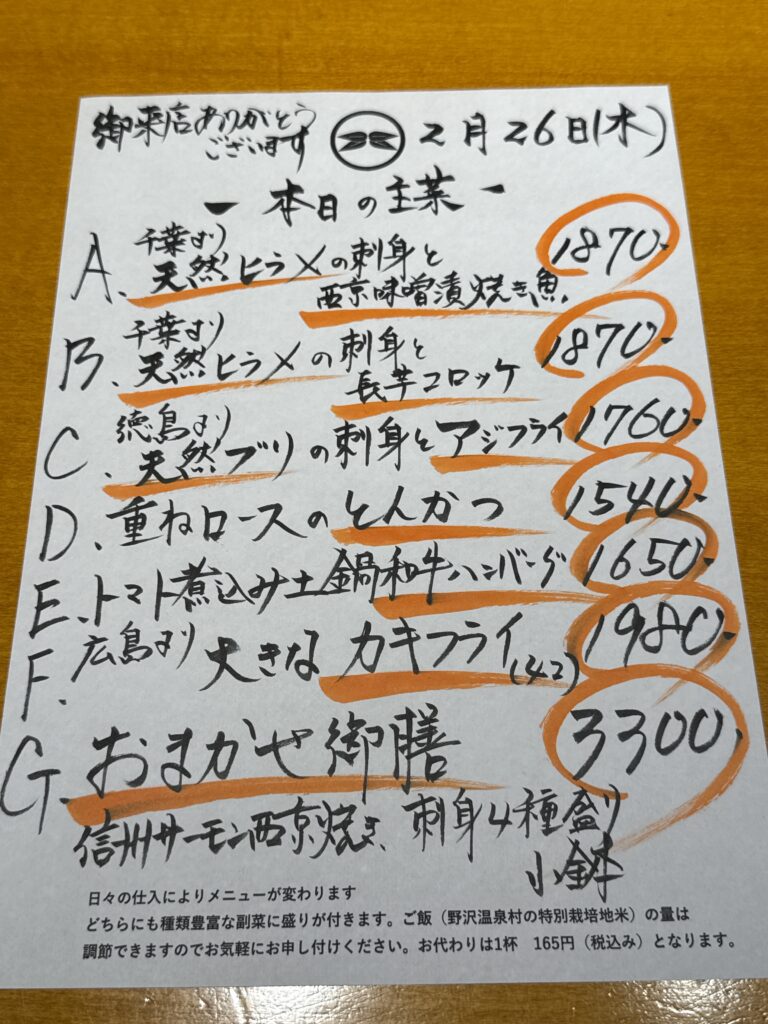 御来店ありがとう
ございます
2月26日(木)
- 本日の主菜 -
A. 千葉より
天然ヒラメの刺身と
西京味噌漬焼き魚
1870-
B. 千葉より
天然ヒラメの刺身と
長芋コロッケ
1870-
C. 徳島より
天然ブリの刺身とアジフライ 1760-
D. 重ねロースのとんかつ 1540-
E. トマト煮込み土鍋和牛ハンバーグ 1650-
F. 広島より 大きなカキフライ(4コ) 1980-
G. おまかせ御膳 3300-
信州サーモン西京焼き、刺身4種盛り
小鉢
日々の仕入によりメニューが変わります
どちらにも種類豊富な副菜に盛りが付きます。ご飯(野沢温泉村の特別栽培地米)の量は
調節できますのでお気軽にお申し付けください。お代わりは1杯 165円(税込み)となります。